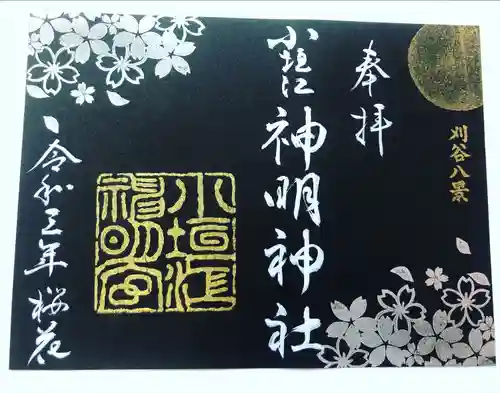 奉拝
刈谷八景
小垣江
神明神社
小垣江
神明宮
令和三年 桜花